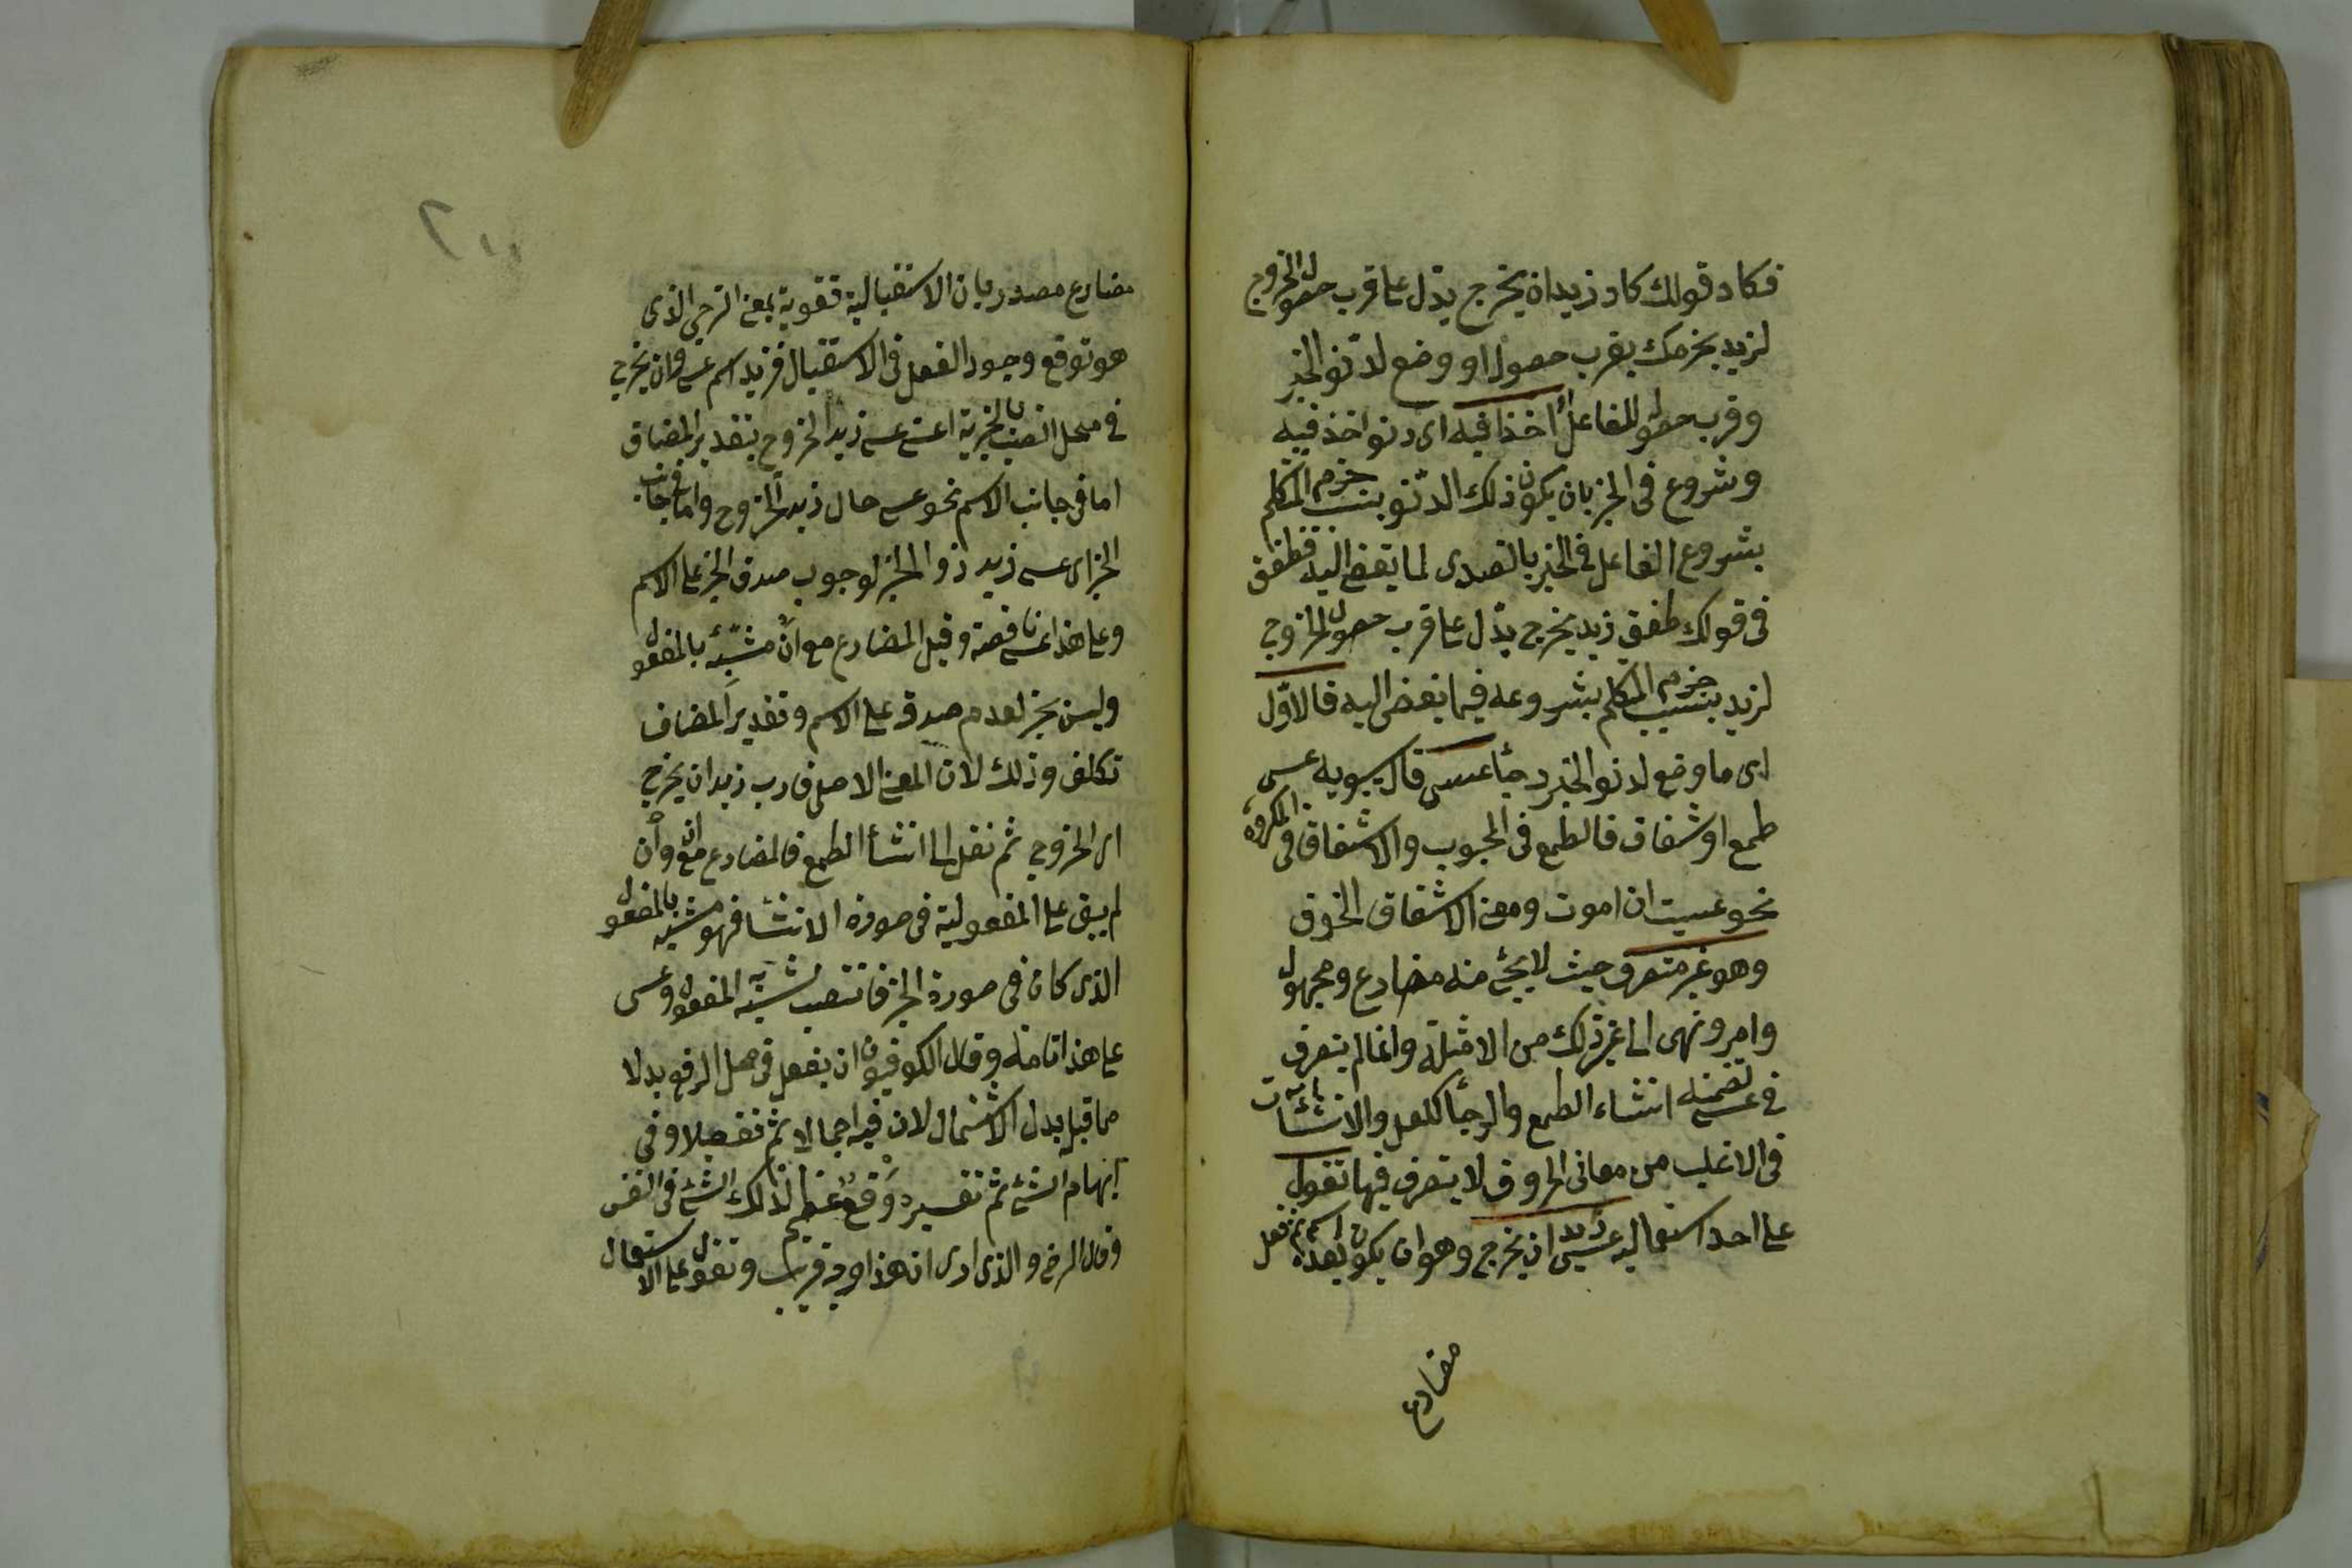 فكاد فى قولك كاد زيد ان يخرج يدل على قرب حصول الخروج
لزيد بجزمك بقرب حصوله او وضع لدنو الخبر
وقرب حصوله للفاعل اخذا فيه اى دنو اخذ فيه
وشروع فى الخبر بان يكون ذلك الدنو بسبب جزم المتكلم
بشروع الفاعل فى الخبر بالتصدى لما يفضى اليه فطفق
فى قولك طفق زيد يخرج يدل على قرب حصول الخروج
لزيد بسبب جزم المتكلم بشروعه فيما يفضى اليه فالاول
اى ما وضع لدنو الخبر رجاء عسى قال سيبويه عسى
طمع او شفاق فالطمع فى المحبوب والاشفاق فى المكروه
نحو عسيت ان اموت ومعنى الاشفاق الخوف
وهو غير متصرف حيث لا يجئ منه مضارع ومجهول
وامر ونهى الى غير ذلك من الامثلة وانما لم يتصرف
فى عسى لتضمنه انشاء الطمع والرجاء كلعل والانشائيات
فى الاغلب من معانى الحروف لا يتصرف فيها تقول
على احد استعماليه عسى زيد ان يخرج وهو ان يكون بعده اسم ثم فعل
مضارع
مضارع مصدر بان الاستقبالية تقوية بمعنى الترجى الذى
هو توقع وجود الفعل فى الاستقبال فزيد اسم عسى وان يخرج
فى محل النصب بالخبرية اعنى عسى زيد الخروج بتقدير المضاف
اما فى جانب الاسم نحو عسى حال زيد الخروج واما فى جانب
الخبر اى عسى زيد ذو الخبر لوجوب صدق الخبر على الاسم
وعلى هذا عسى ناقصة وقيل المضارع مع ان مشبه بالمفعول
وليس بخبر لعدم صدقه على الاسم وتقدير المضاف
تكلف وذلك لان المعنى الاصلى قارب زيد ان يخرج
اى الخروج ثم نقل الى انشأ الطمع فالمضارع مع ان وان
لم يبق على المفعولية فى صورة الانشا فهو مشبه بالمفعول
الذى كان فى صورة الخبر فانتصب لشبهه المفعول وعسى
على هذا تامة وقال الكوفيون ان يفعل فى محل الرفع بدلا
مما قبله بدل الاشتمال لان فيه اجمالا ثم تفصيلا وفى
ابهام الشئ ثم تفسيره وقع عظيم لذلك الشئ فى النفس
وقال الرضى والذى ارى ان هذا وجه قريب وتقول على الاستعمال